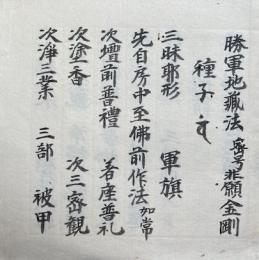 勝軍地藏法 密号悲願金剛
種子
三昧耶形 軍旗
先自房中至佛前作法如常
次壇前普禮 着座普礼
次塗香 次三密観
次淨三業 三部 被甲